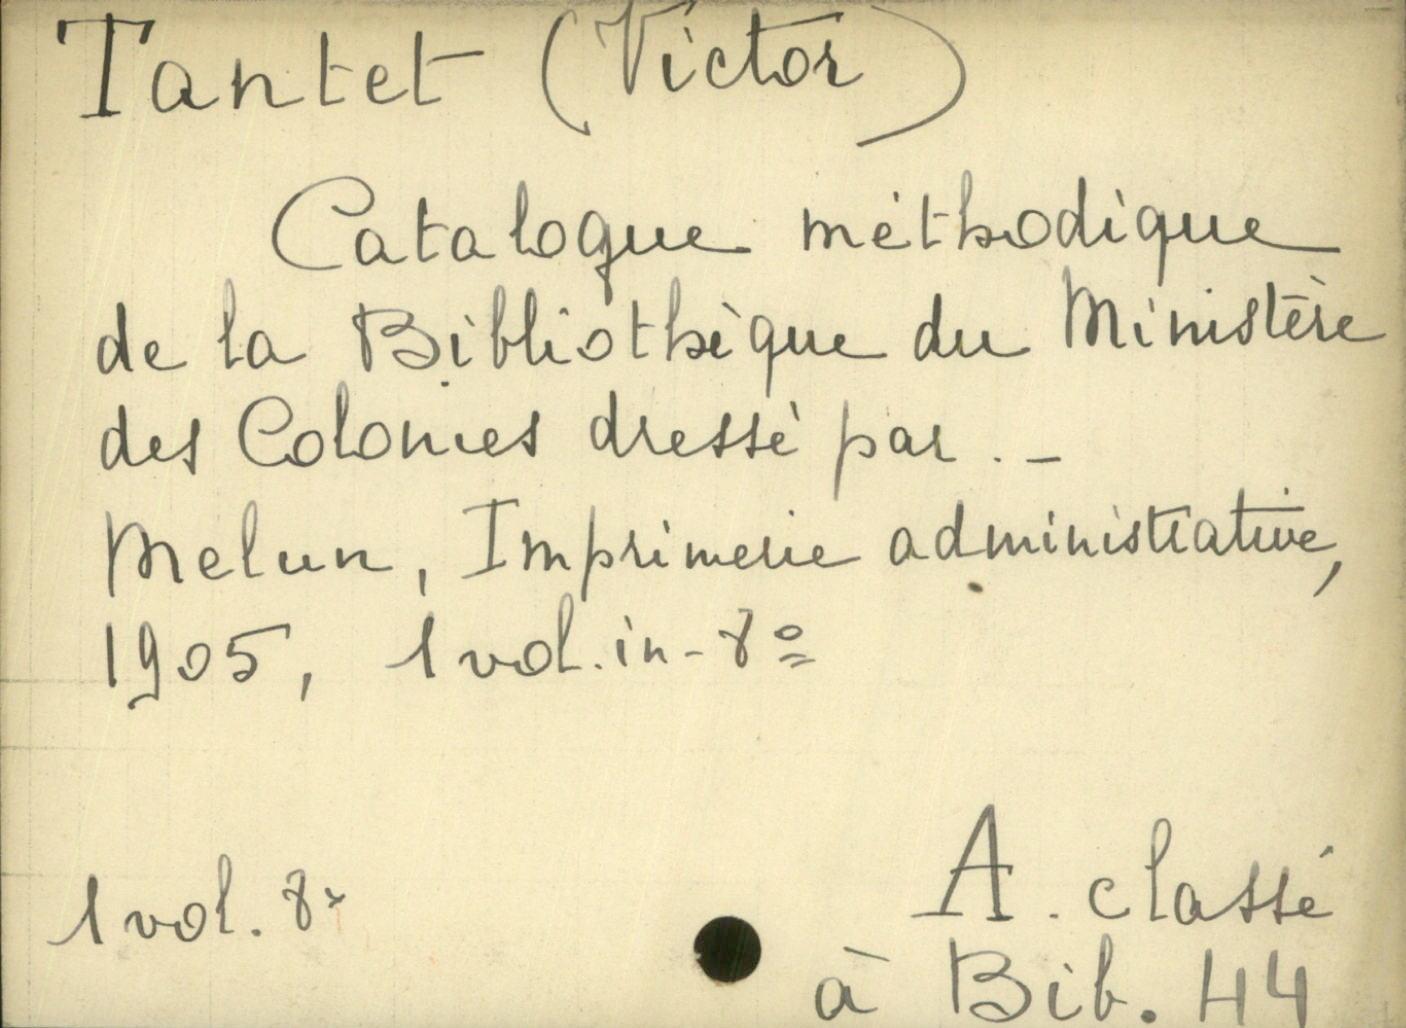 Tantet (Victor)
Catalogue méthodique
de la Bibliothèque du Ministère
des Colonies dressé par. _
Melun, Imprimerie administrative,
1905, 1 vol. in-8º
1 vol. 8º
A. classé
à Bib. 44